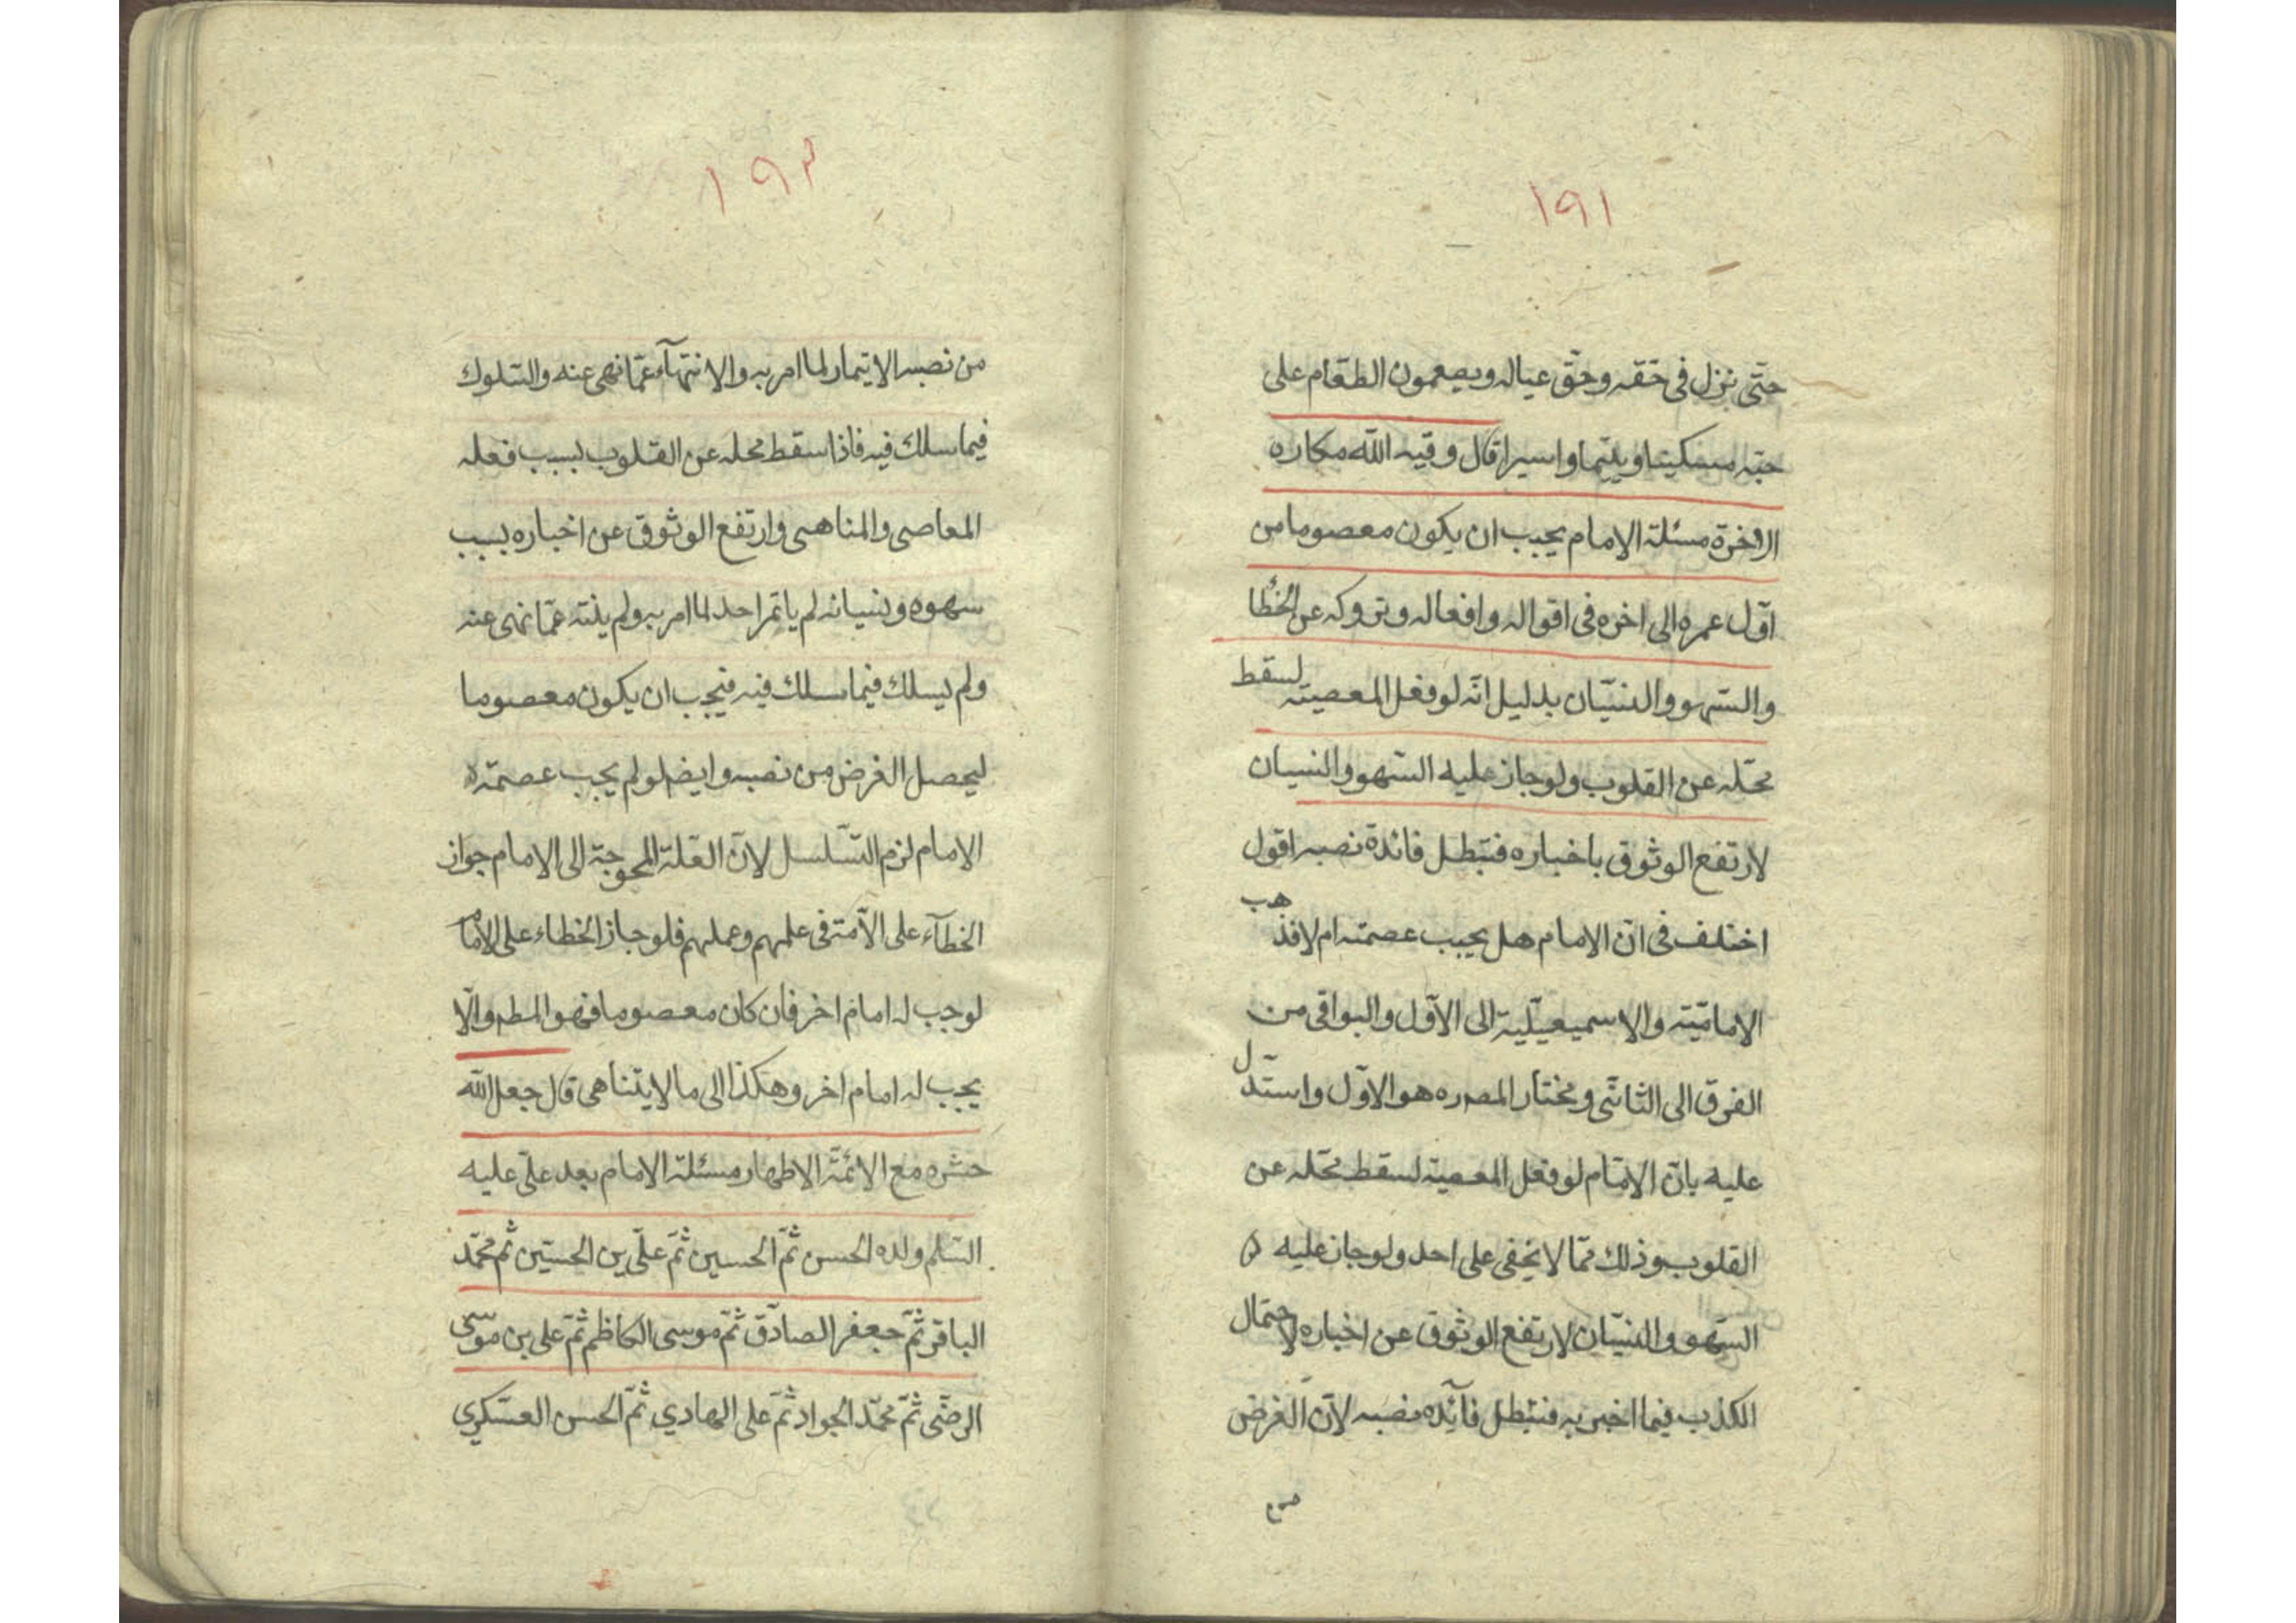 ١٩١
حتّى نزل فى حقّه وحقّ عياله ويطعمون الطّعام على
حبّه مسكينا ويتيما واسيرا قال وقيه اللّه مكاره
الاخرة مسئلة الامام يجب ان يكون معصوما من
اوّل عمره الى اخره فى اقواله وافعاله وتروكه عن الخطأ
والسّهو والنسيان بدليل انّه لو فعل المعصية لسقط
محلّه عن القلوب ولو جاز عليه السّهو والنسيان
لارتفع الوثوق باخباره فتبطل فائدة نصبه اقول
اختلف فى انّ الامام هل يجب عصمته ام لا فذهب
الاماميّة والاسميعيليّة الى الاوّل والبواقى من
الفرق الى الثّانى ومختار المصره هو الاوّل واستدلّ
عليه بانّ الامام لو فعل المعصية لسقط محلّه عن
القلوب وذلك ممّا لا يخفى على احد ولو جاز عليه
السّهو والنسيان لارتفع الوثوق عن اخباره لاحتمال
الكذب فيما اخبر به فتبطل فآئدة نصبه لانّ الغرض
من
١٩٢
من نصبه الايتمار لما امر به والانتهآء عمّا نهى عنه والسّلوك
فيما سلك فيه فاذا سقط محله عن القلوب بسبب فعله
المعاصى والمناهى وارتفع الوثوق عن اخباره بسبب
سهوه ونسيانه لم ياتمر احد لما امر به ولم ينته عمّا نهى عنه
ولم يسلك فيما سلك فيه فيجب ان يكون معصوما
ليحصل الغرض من نصبه وايضا لو لم يجب عصمة
الامام لزم التّسلسل لانّ العلّة المحوجة الى الامام جواز
الخطآء على الامّة فى علمهم وعملهم فلو جاز الخطاء على الامام
لوجب له امام اخر فان كان معصوما فهو المط والّا
يجب له امام اخر وهكذا الى ما لا يتناهى قال جعل اللّه
حشره مع الائمّة الاطهار مسئلة الامام بعد علىّ عليه
السّلم ولده الحسن ثمّ الحسين ثمّ علىّ بن الحسين ثم محمّد
الباقر ثمّ جعفر الصادق ثمّ موسى الكاظم ثمّ على بن موسى
الرضى ثمّ محمّد الجواد ثمّ على الهادي ثمّ الحسن العسكري